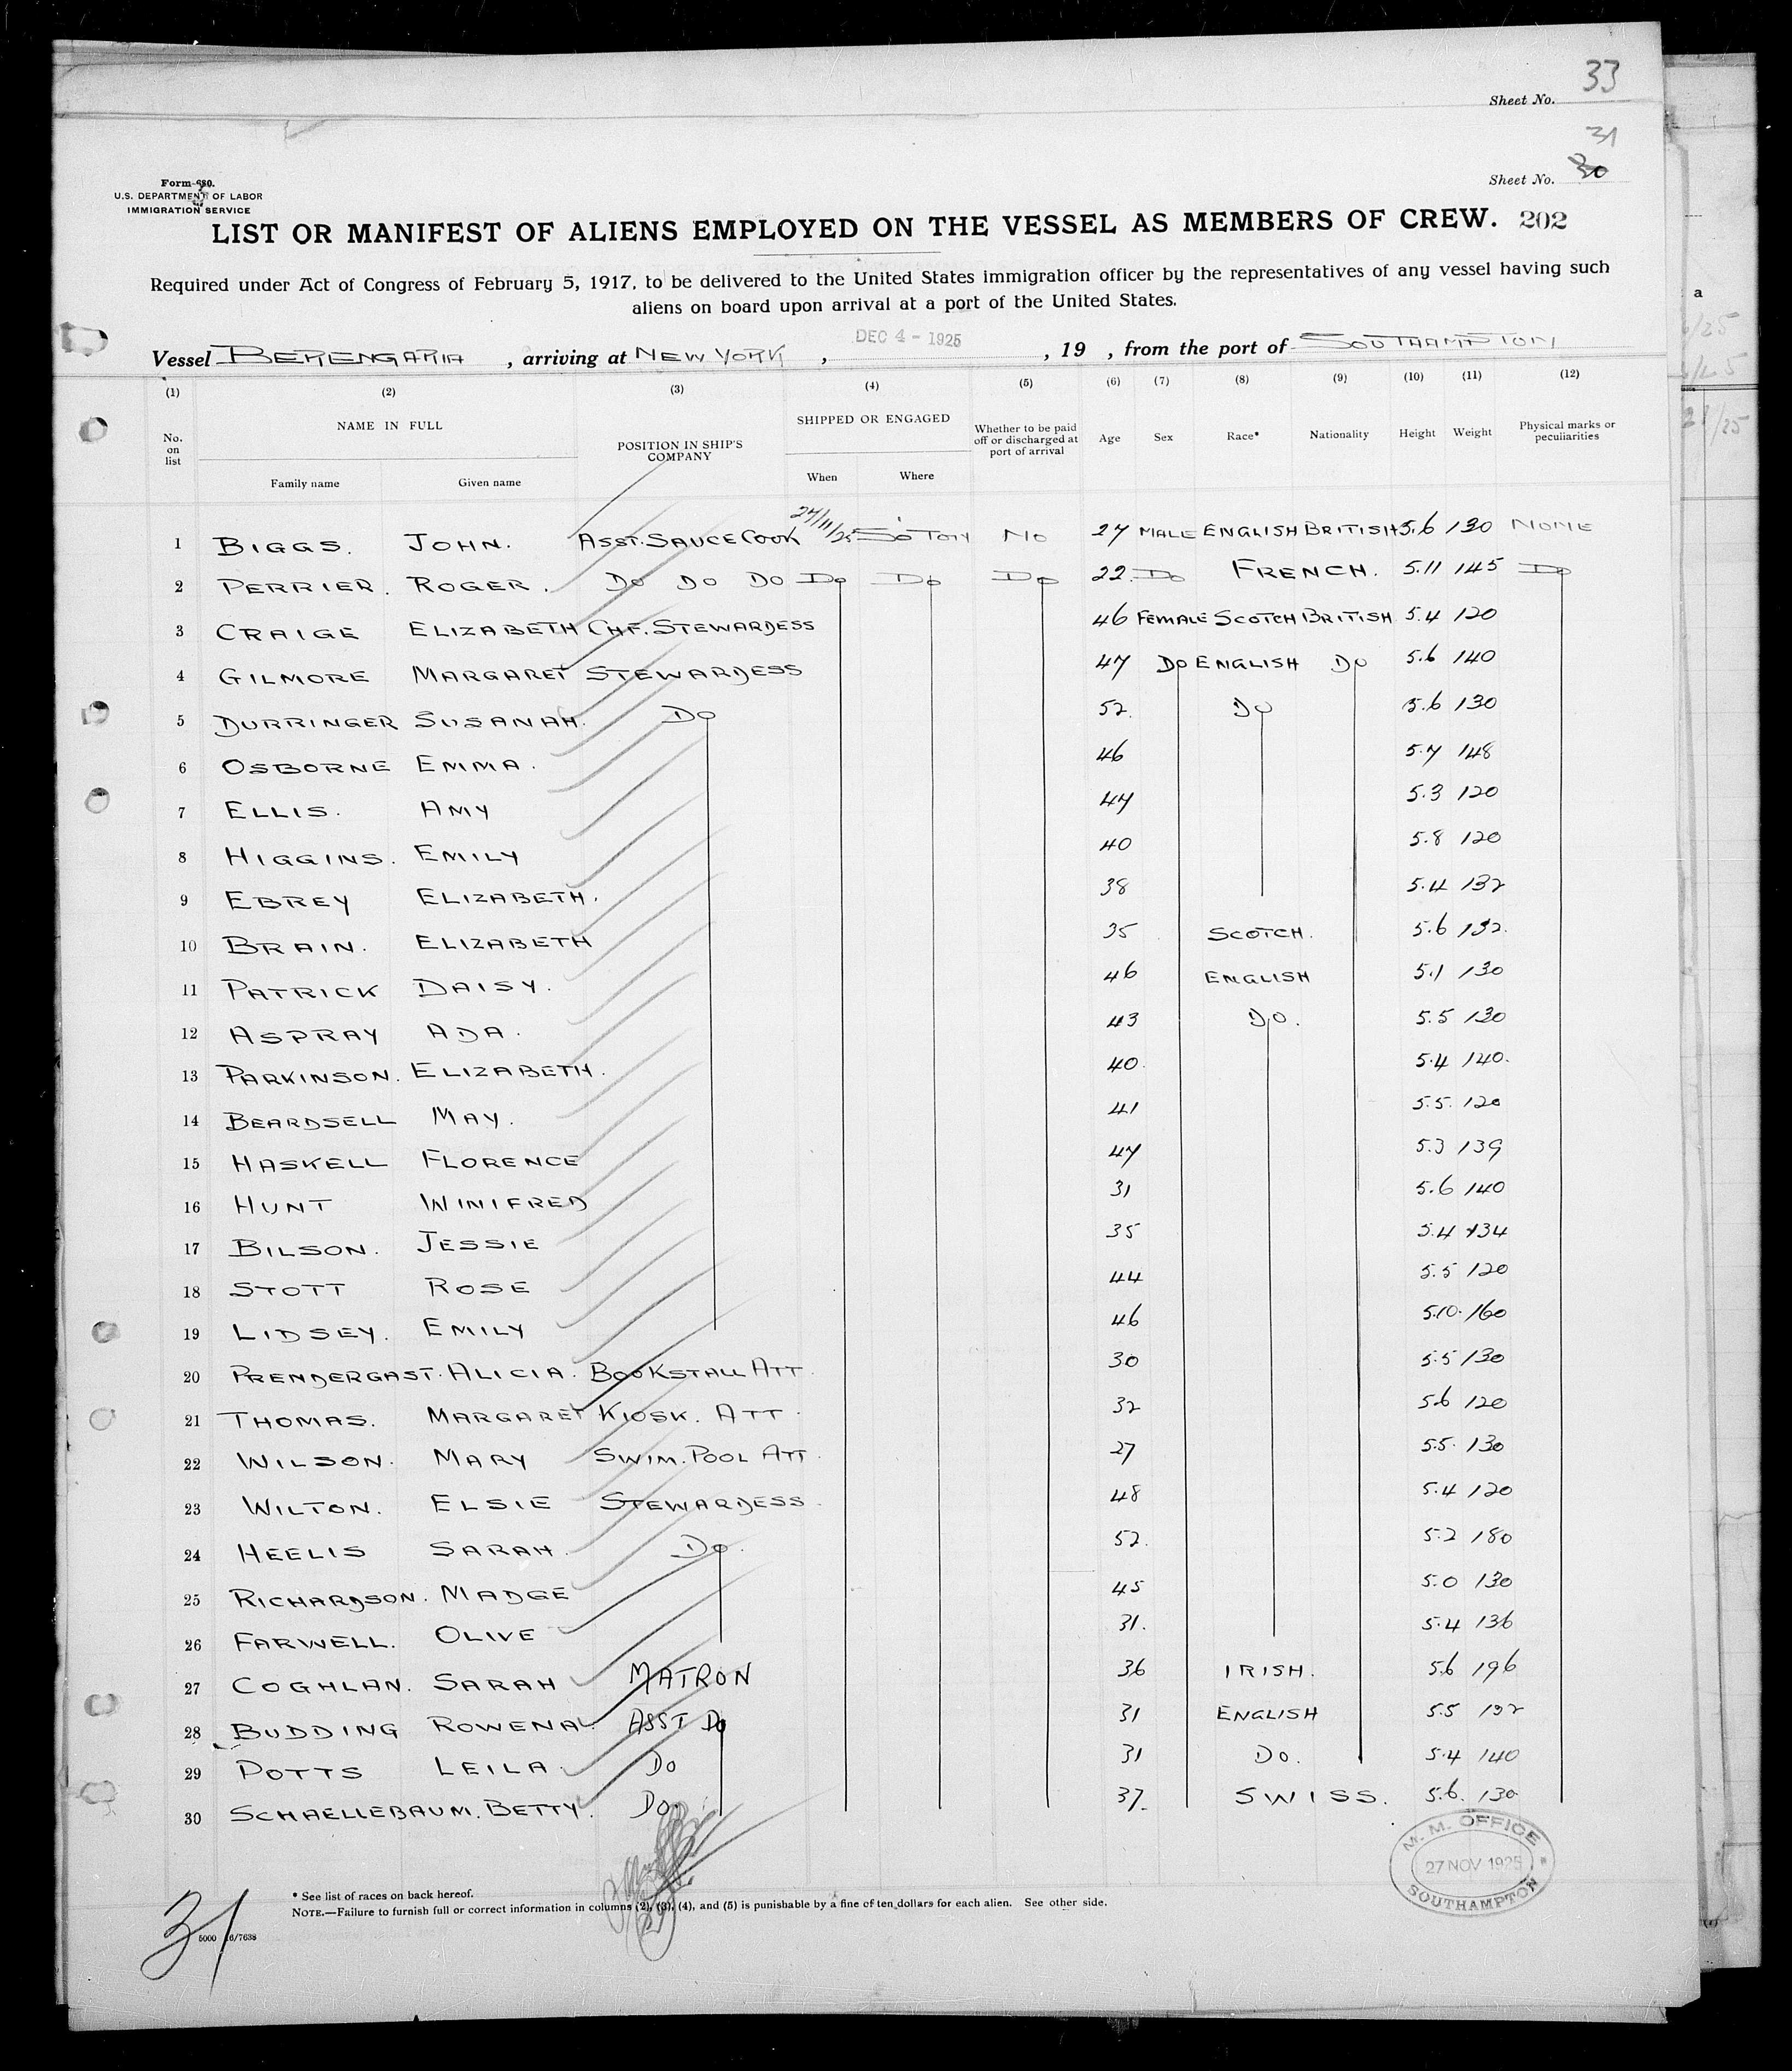 33
Sheet No.
31
Sheet No. 30
Form 680.
U.S. DEPARTMENT OF LABOR
IMMIGRATION SERVICE
LIST OR MANIFEST OF ALIENS EMPLOYED ON THE VESSEL AS MEMBERS OF CREW. 202
Required under Act of Congress of February 5, 1917, to be delivered to the United States immigration officer by the representatives of any vessel having such
aliens on board upon arrival at a port of the United States.
Vessel BERENGARIA, arriving at NEW YORK, DEC 4 - 1925, 19 , from the port of SOUTHAMPTON
(1) (2) (3) (4) (5) (6) (7) (8) (9) (10) (11) (12)
No. on list NAME IN FULL POSITION IN SHIP'S COMPANY SHIPPED OR ENGAGED Whether to be paid off or discharged at port of arrival Age Sex Race* Nationality Height Weight Physical marks or peculiarities
Family name Given name When Where
1 BIGGS. JOHN. ASST. SAUCE COOK 27/11/25 S'TON NO 27 MALE ENGLISH BRITISH 5.6 130 NONE
2 PERRIER. ROGER. DO DO DO DO DO DO 22. DO FRENCH. 5.11 145 DO
3 CRAIGE ELIZABETH CHF. STEWARDESS 46 FEMALE SCOTCH BRITISH 5.4 120
4 GILMORE MARGARET STEWARDESS 47 DO ENGLISH DO 5.6 140
5 DURRINGER SUSANAH. DO 52. DO 5.6 130
6 OSBORNE EMMA. 46 5.7 148
7 ELLIS. AMY 47 5.3 120
8 HIGGINS. EMILY 40 5.8 120
9 EBREY ELIZABETH. 38 5.4 132
10 BRAIN. ELIZABETH 35 SCOTCH. 5.6 132.
11 PATRICK DAISY. 46 ENGLISH 5.1 130
12 ASPRAY ADA. 43 DO. 5.5 130
13 PARKINSON. ELIZABETH. 40. 5.4 140.
14 BEARDSELL MAY. 41 5.5. 120
15 HASKELL FLORENCE 47 5.3 139
16 HUNT WINIFRED 31 5.6 140
17 BILSON. JESSIE 35 5.4 134
18 STOTT ROSE 44 5.5 120
19 LIDSEY. EMILY 46 5.10. 160
20 PRENDERGAST. ALICIA. BOOKSTALL ATT. 30 5.5 130
21 THOMAS. MARGARET KIOSK. ATT. 32 5.6 120
22 WILSON. MARY SWIM. POOL ATT. 27 5.5. 130
23 WILTON. ELSIE STEWARDESS. 48 5.4 120
24 HEELIS SARAH. DO. 52. 5.2 180
25 RICHARDSON. MADGE 45 5.0 130
26 FARWELL. OLIVE 31. 5.4 136
27 COGHLAN. SARAH MATRON 36 IRISH. 5.6 196
28 BUDDING ROWENA. ASST DO 31 ENGLISH 5.5 132
29 POTTS LEILA. DO 31 DO. 5.4 140
30 SCHAELLEBAUM. BETTY. DO. 37. SWISS. 5.6. 130
M. M. OFFICE
27 NOV 1925
SOUTHAMPTON
* See list of races on back hereof.
NOTE.—Failure to furnish full or correct information in columns (2), (3), (4), and (5) is punishable by a fine of ten dollars for each alien. See other side.
31